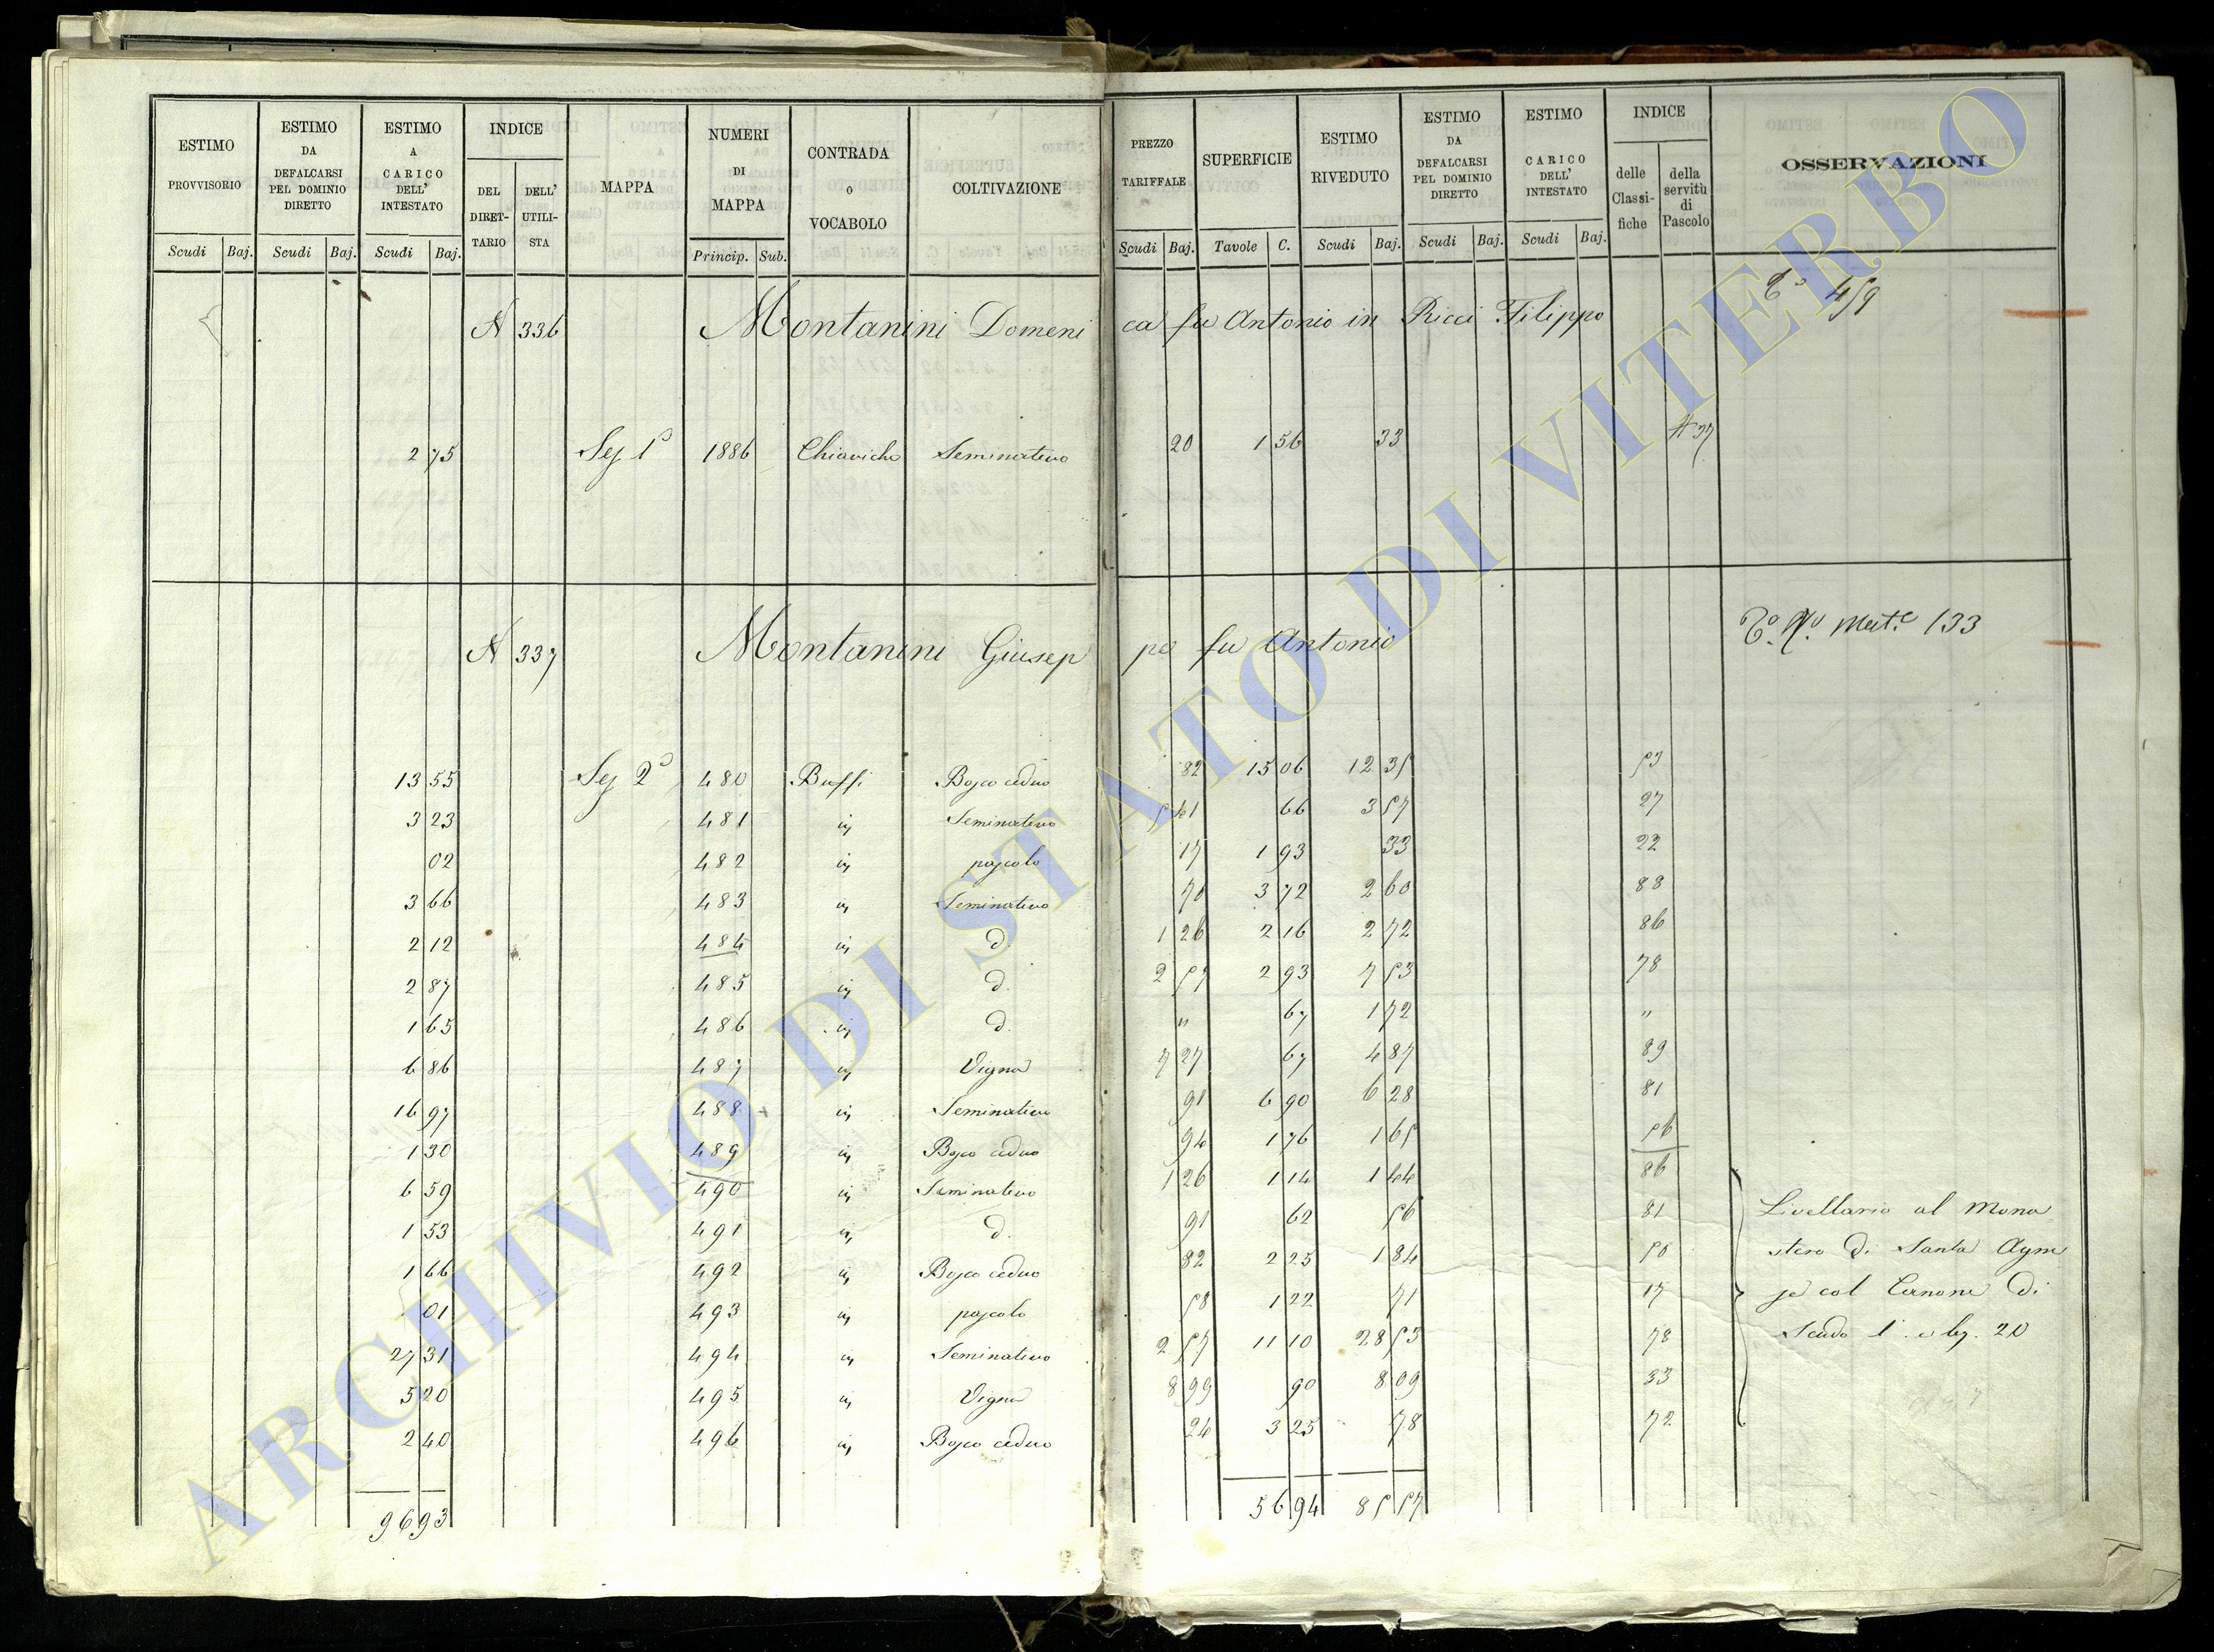 ESTIMO PROVVISORIO
ESTIMO DA DEFALCARSI PEL DOMINIO DIRETTO
ESTIMO A CARICO DELL' INTESTATO
INDICE
DEL DIRETTARIO
DELL' UTILISTA
MAPPA
NUMERI DI MAPPA
CONTRADA O VOCABOLO
COLTIVAZIONE
PREZZO TARIFFALE
SUPERFICIE
ESTIMO RIVEDUTO
ESTIMO DA DEFALCARSI PEL DOMINIO DIRETTO
ESTIMO CARICO DELL' INTESTATO
INDICE
delle Classifiche
della servitù di Pascolo
OSSERVAZIONI
Scudi Baj. Scudi Baj. Scudi Baj. Princip. Sub. Scudi Baj. Tavole C. Scudi Baj. Scudi Baj. Scudi Baj.
N 336 Montanini Domenica fu Antonio in Ricci Filippo 459
2 75 Sez 1ª 1886 Chiaviche Seminativo 20 1 56 33 37
N 337 Montanini Giuseppe fu Antonio 133
13 55 Sez 2ª 480 Buffi Bosco ceduo 82 15 06 12 35 53
3 23 481 in Seminativo 5 41 66 3 57 27
02 482 in pascolo 17 1 93 33 22
3 66 483 in Seminativo 70 3 72 2 60 88
2 12 484 in d. 1 26 2 16 2 72 86
2 87 485 in d. 2 57 2 93 7 53 78
1 65 486 in d. " 67 1 72 "
6 86 487 in Vigna 7 27 67 4 87 89
16 97 488 in Seminativo 91 6 90 6 28 81
1 30 489 in Bosco ceduo 94 1 76 1 65 56
6 59 490 in Seminativo 1 26 1 14 1 44 86
1 53 491 in d. 91 62 56 81
1 66 492 in Bosco ceduo 82 2 25 1 84 50
01 493 in pascolo 58 1 22 71 17
27 31 494 in Seminativo 2 57 11 10 28 53 78
5 20 495 in Vigna 8 99 90 8 09 33
2 40 496 in Bosco ceduo 24 3 25 78 72
Livellario al Mona
stero di Santa Agne
se col Canone di
Scudo 1. e bj. 20
96 93 56 94 85 57
ARCHIVIO DI STATO DI VITERBO